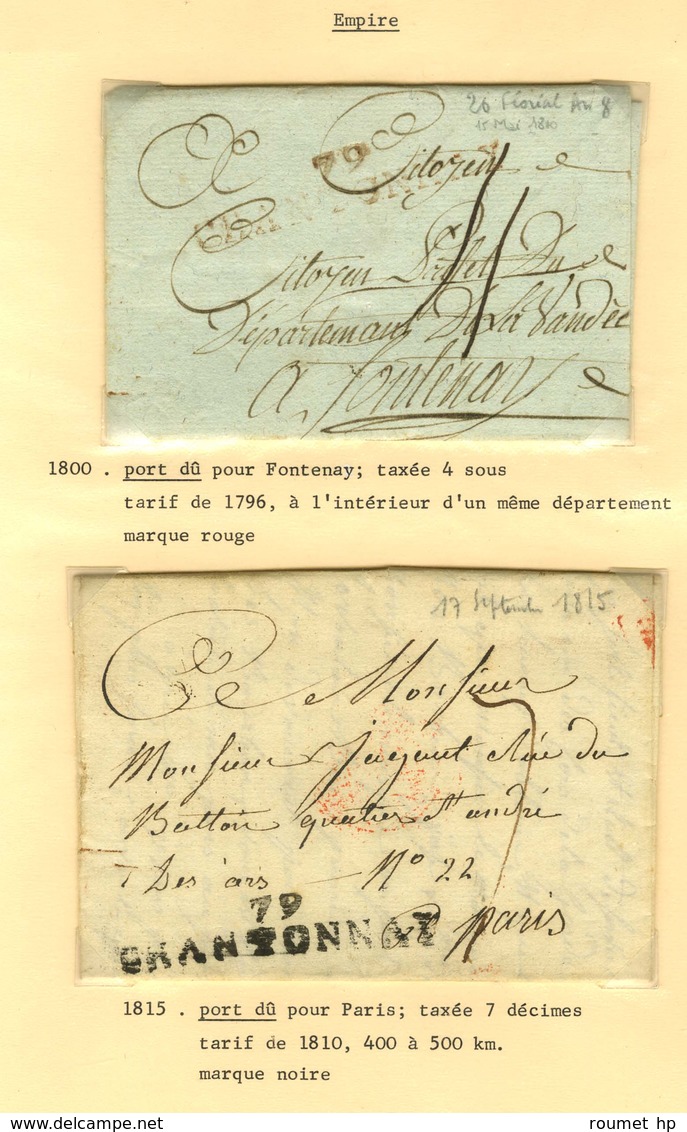 Empire
26 floréal An 8
15 Mai 1800
79
CHANTONNAY
Citoyen
Citoyen Préfet Du
Département De La Vandée
A fontenay
1800 . port dû pour Fontenay; taxée 4 sous
tarif de 1796, à l'intérieur d'un même département
marque rouge
17 Septembre 1815
Monsieur
Monsieur Rue du
Battoir quartier St andré
Des ars N° 22
79
CHANTONNAY
A paris
1815 . port dû pour Paris; taxée 7 décimes
tarif de 1810, 400 à 500 km.
marque noire
roumet hp